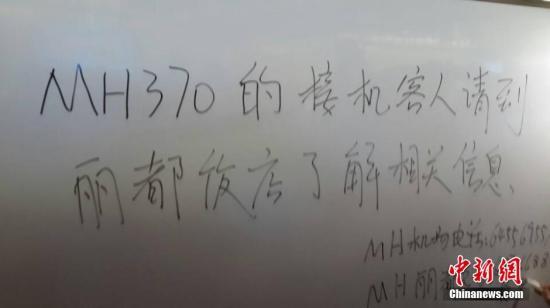 MH370 的接机客人请到
丽都饭店了解相关信息
MH 机场电话:
MH 丽
中新网
Chinanews.com